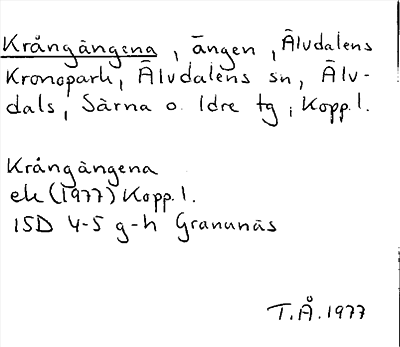 Krångängena, ängen, Älvdalens
Kronopark, Älvdalens sn, Älv-
dals, Särna o. Idre tg, Kopp.l.
Krångängena
ek (1977) Kopp.l.
15D 4-5 g-h Granunäs
T.Å. 1977